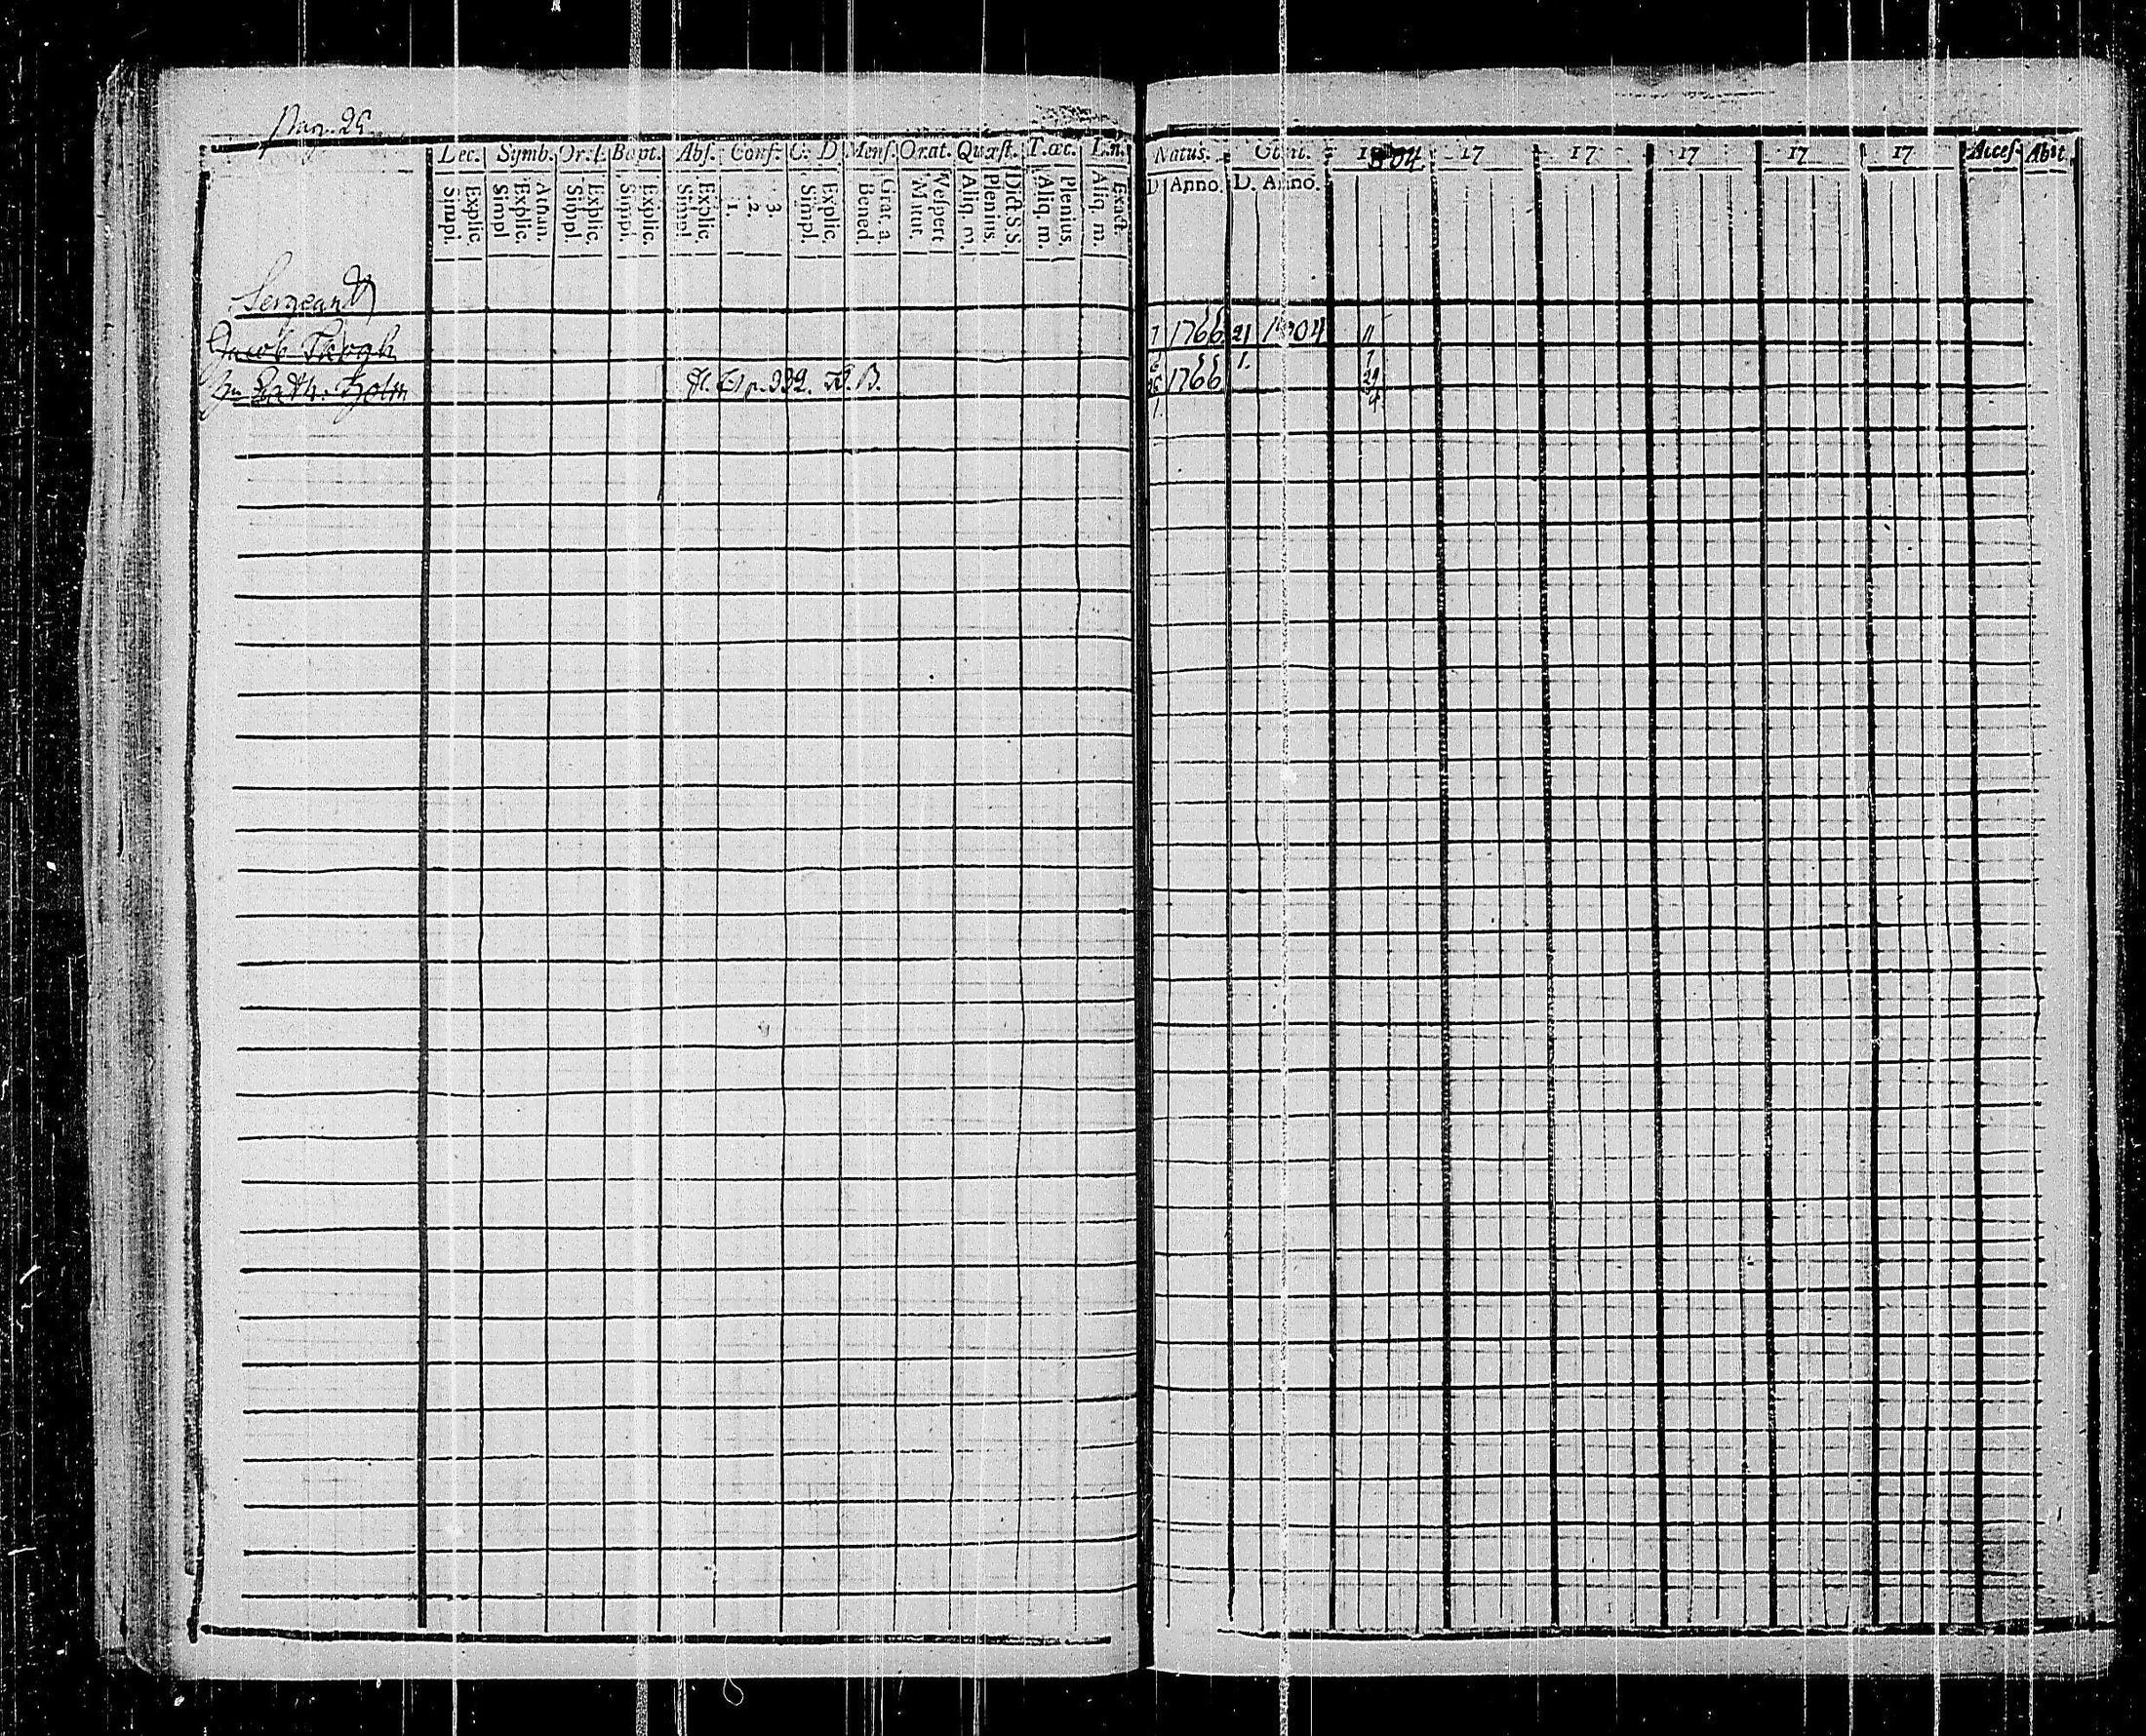 Pag. 25.
Lec. Symb. Or. d. Bapt. Abs. Conf. C. D Mens. Orat. Quæst. T. œc. L. n.
Simpl. Explic. Simpl Explic. Athan. Simpl. Explic. Simpl. Explic. Simpl. Explic. 1. 2. 3. Simpl. Explic. Bened Grat. a. Matut. Vespert Aliq. m. Plenius. Dict. S S. Aliq. m. Plenius. Aliq. m. Exact.
Natus. Obiit. 1804 17 17 17 17 17 Acces. Abit
D Anno. D. Anno.
Sergeant
Jacob Skogh 7 1766 21 1804 11
Hu Cath: Holm p. 332. B. 1766 1. 29